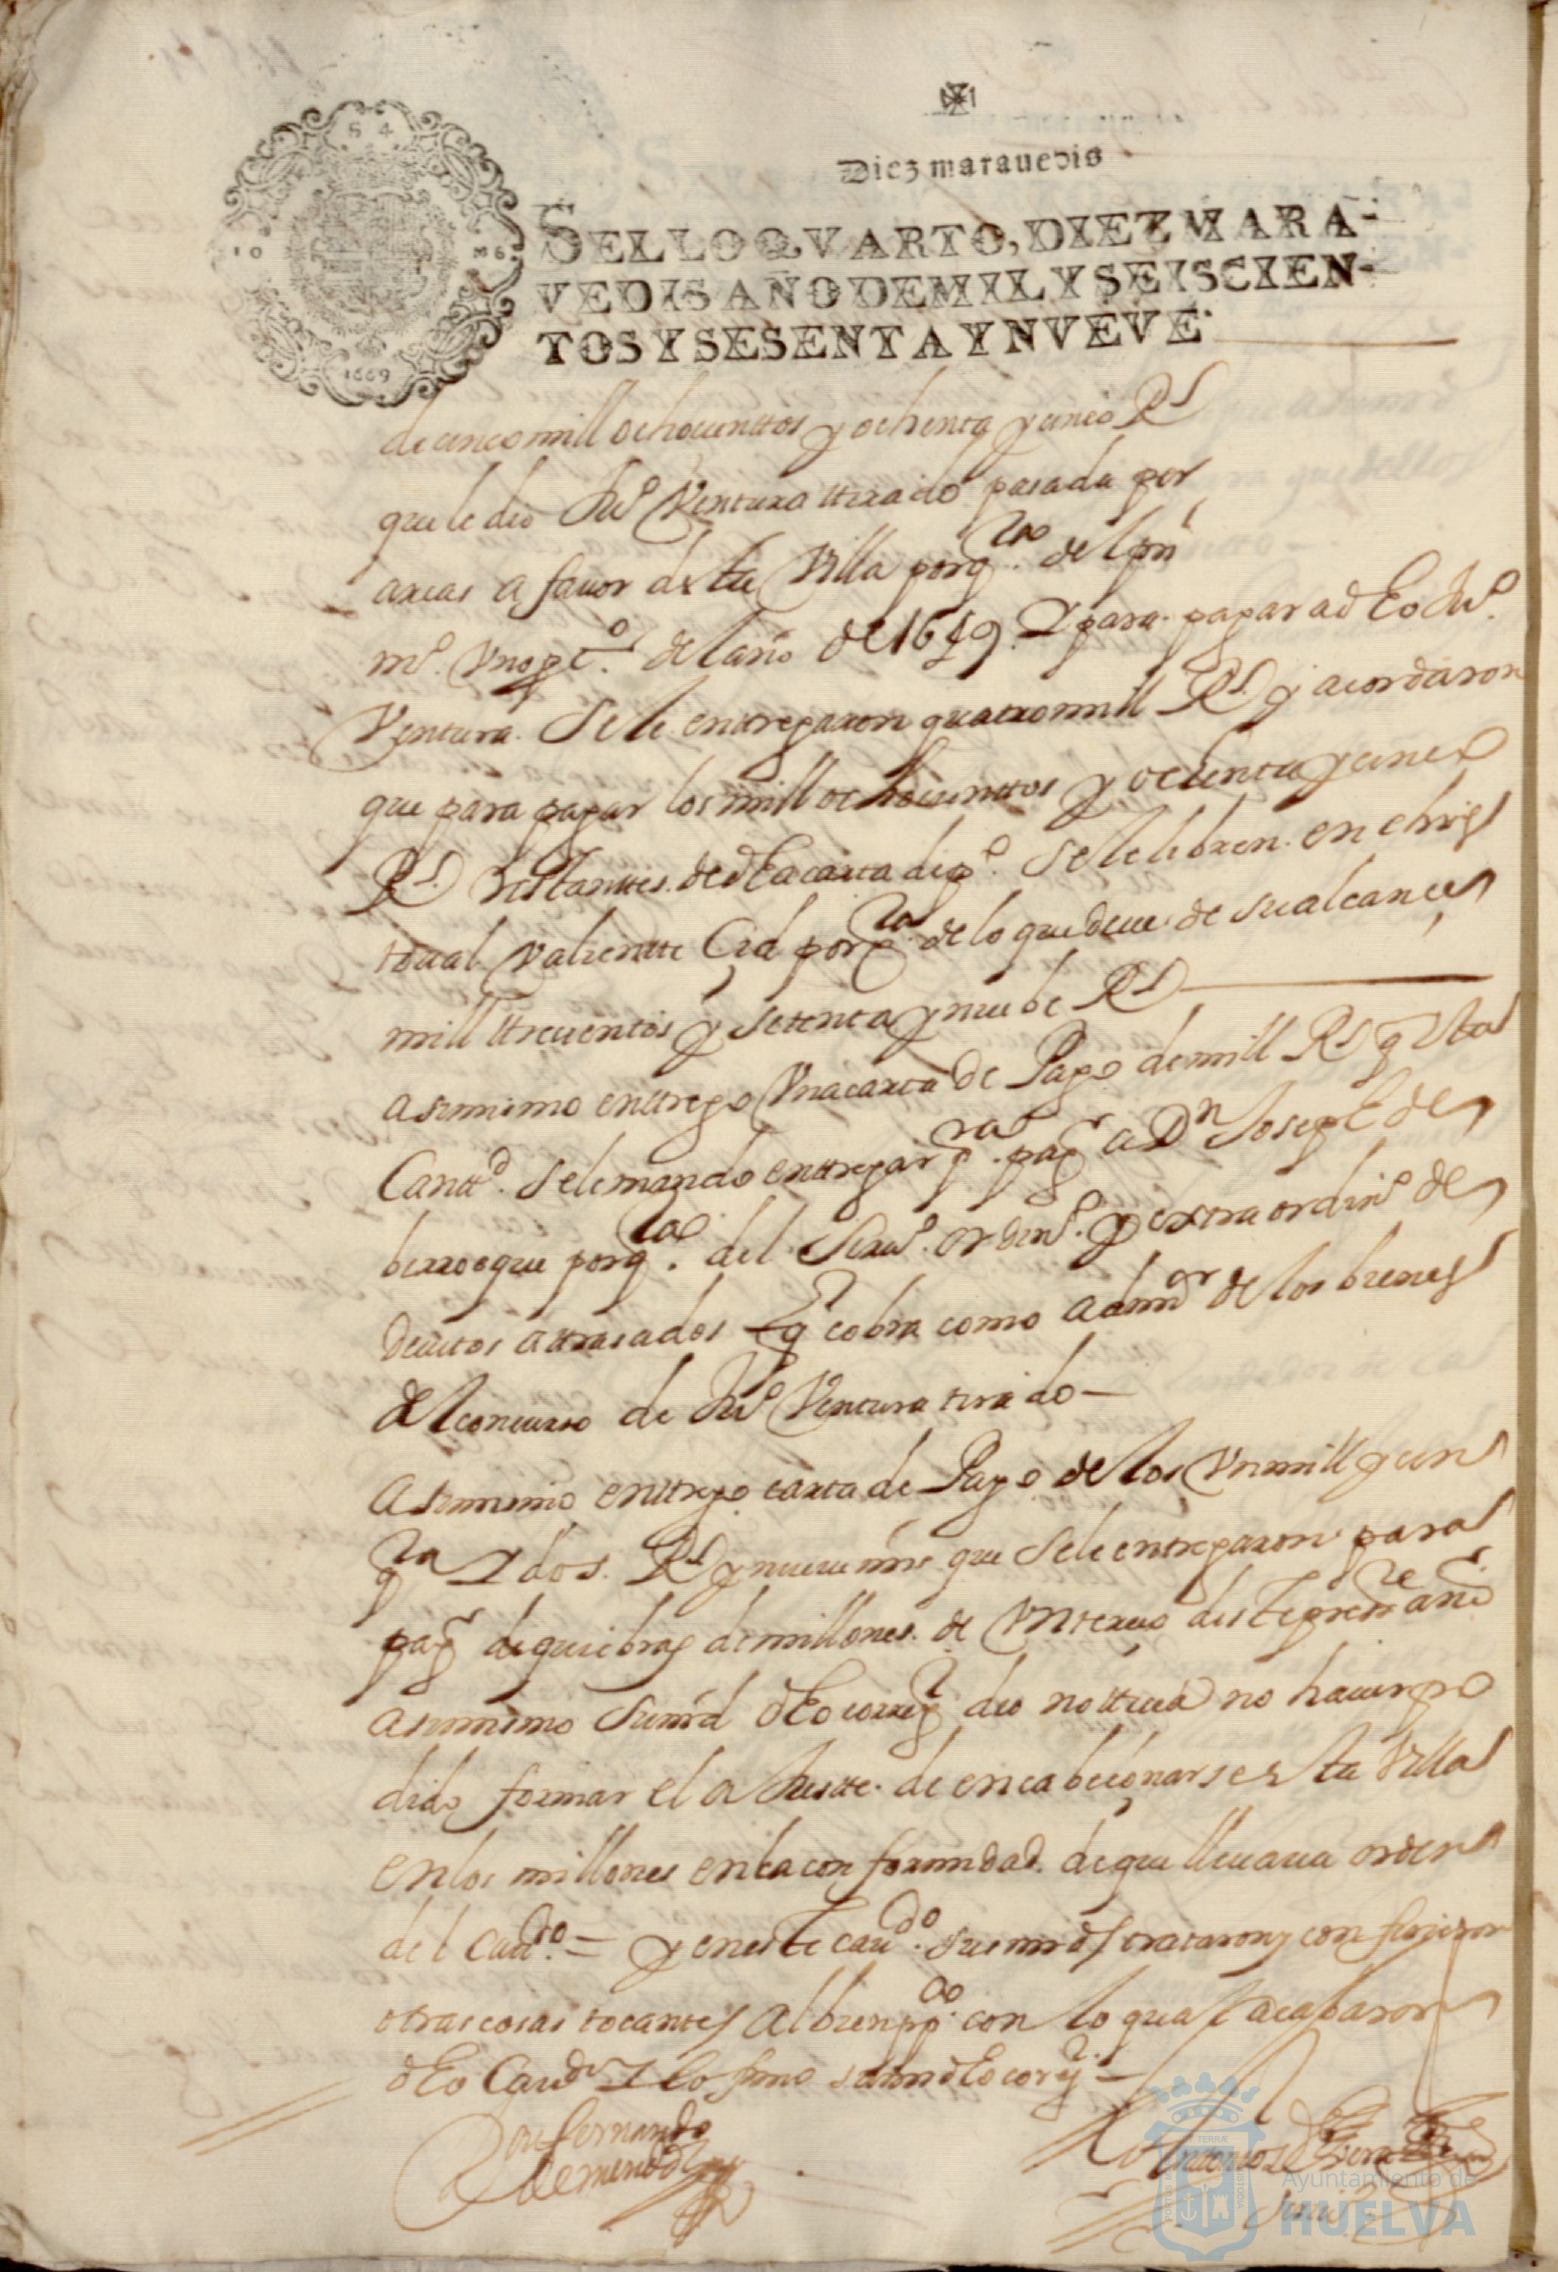 Diez marauedis
SELLO QVARTO, DIEZ MARA-
VEDIS AÑO DE MIL Y SEISCIEN-
TOS Y SESENTA Y NVEVE.
S 4
10 M6
1669
de cinco mill ochocienttos y ochenta y cinco Rs
que le dio Juº Ventura ttirado pasada por
arcas a fauor desta Villa por qta del pri
mº Vno pcº del año de 1649. Y para pagar a dho Juº
Ventura. Se le entregaron quatro mill Rs y acordaron
que para pagar los mill ochocienttos y ochenta y cinco
Rs Restanttes de dha carta de pº Se le libren en chris
toual Valientte Cid por qta de lo que deue de su alcance
mill ttrecientos y setenta y nuebe Rs
asimismo enttrego Vna carta de Pago de mill Rs q esta
Canttd. Se le mando enttregar pra pagr a Dn Joseph de
berroeque por qta del Seruº ordinº y extraordinº de
deuitos attrasados q cobra como admdor de los bienes
del concurso de Juº Ventura tirado
asimismo enttrego carta de Pago de los Vn mill y cin
qta Y dos Rs y nueue mrs que se le entregaron para
pagr de quiebras de millones de Vn tercio deste preste año
asimismo su md dho corregr dio notticia no hauer po
dido formar el a Justte de encabeçonarse esta Villa
en los millones en la conformidad de que lleuaua orden
del caudo = y en este caudo sus mrds trataron y confirieron
otras cosas tocantes al bien ppco con lo qual acabaron
dho Caudo Y lo firmo su md dho corregr =
Don fernando
de mendoza
Antonio de
Ayuntamiento de
HUELVA